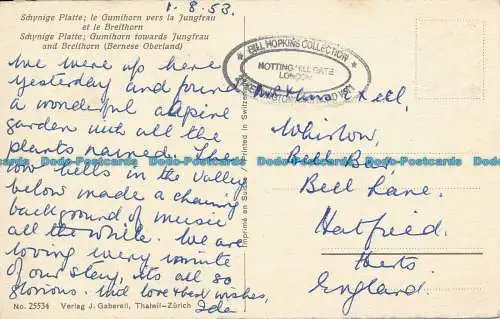 1.8.53.
Schynige Platte; le Gumihorn vers la Jungfrau
et le Breithorn
Schynige Platte; Gumihorn towards Jungfrau
and Breithorn (Bernese Oberland)
We were up here
yesterday and found
a wonderful alpine
garden with all the
plants named. The
cow bells in the valley
below made a charming
background of music
all the while. We are
loving every minute
of our stay, its all so
glorious. With love & best wishes,
Ida
No. 25534 Verlag J. Gaberell, Thalwil-Zürich
Imprimé en Suisse / Printed in Switzerland
BILL HOPKINS COLLECTION
NOTTING HILL GATE
LONDON
KENSINGTON
Keel,
Whinlow,
Bell Bar,
Bell Lane,
Hatfield,
Herts
England.
Dodo-Postcards Dodo-Postcards Dodo-Postcards Dodo-Postcards